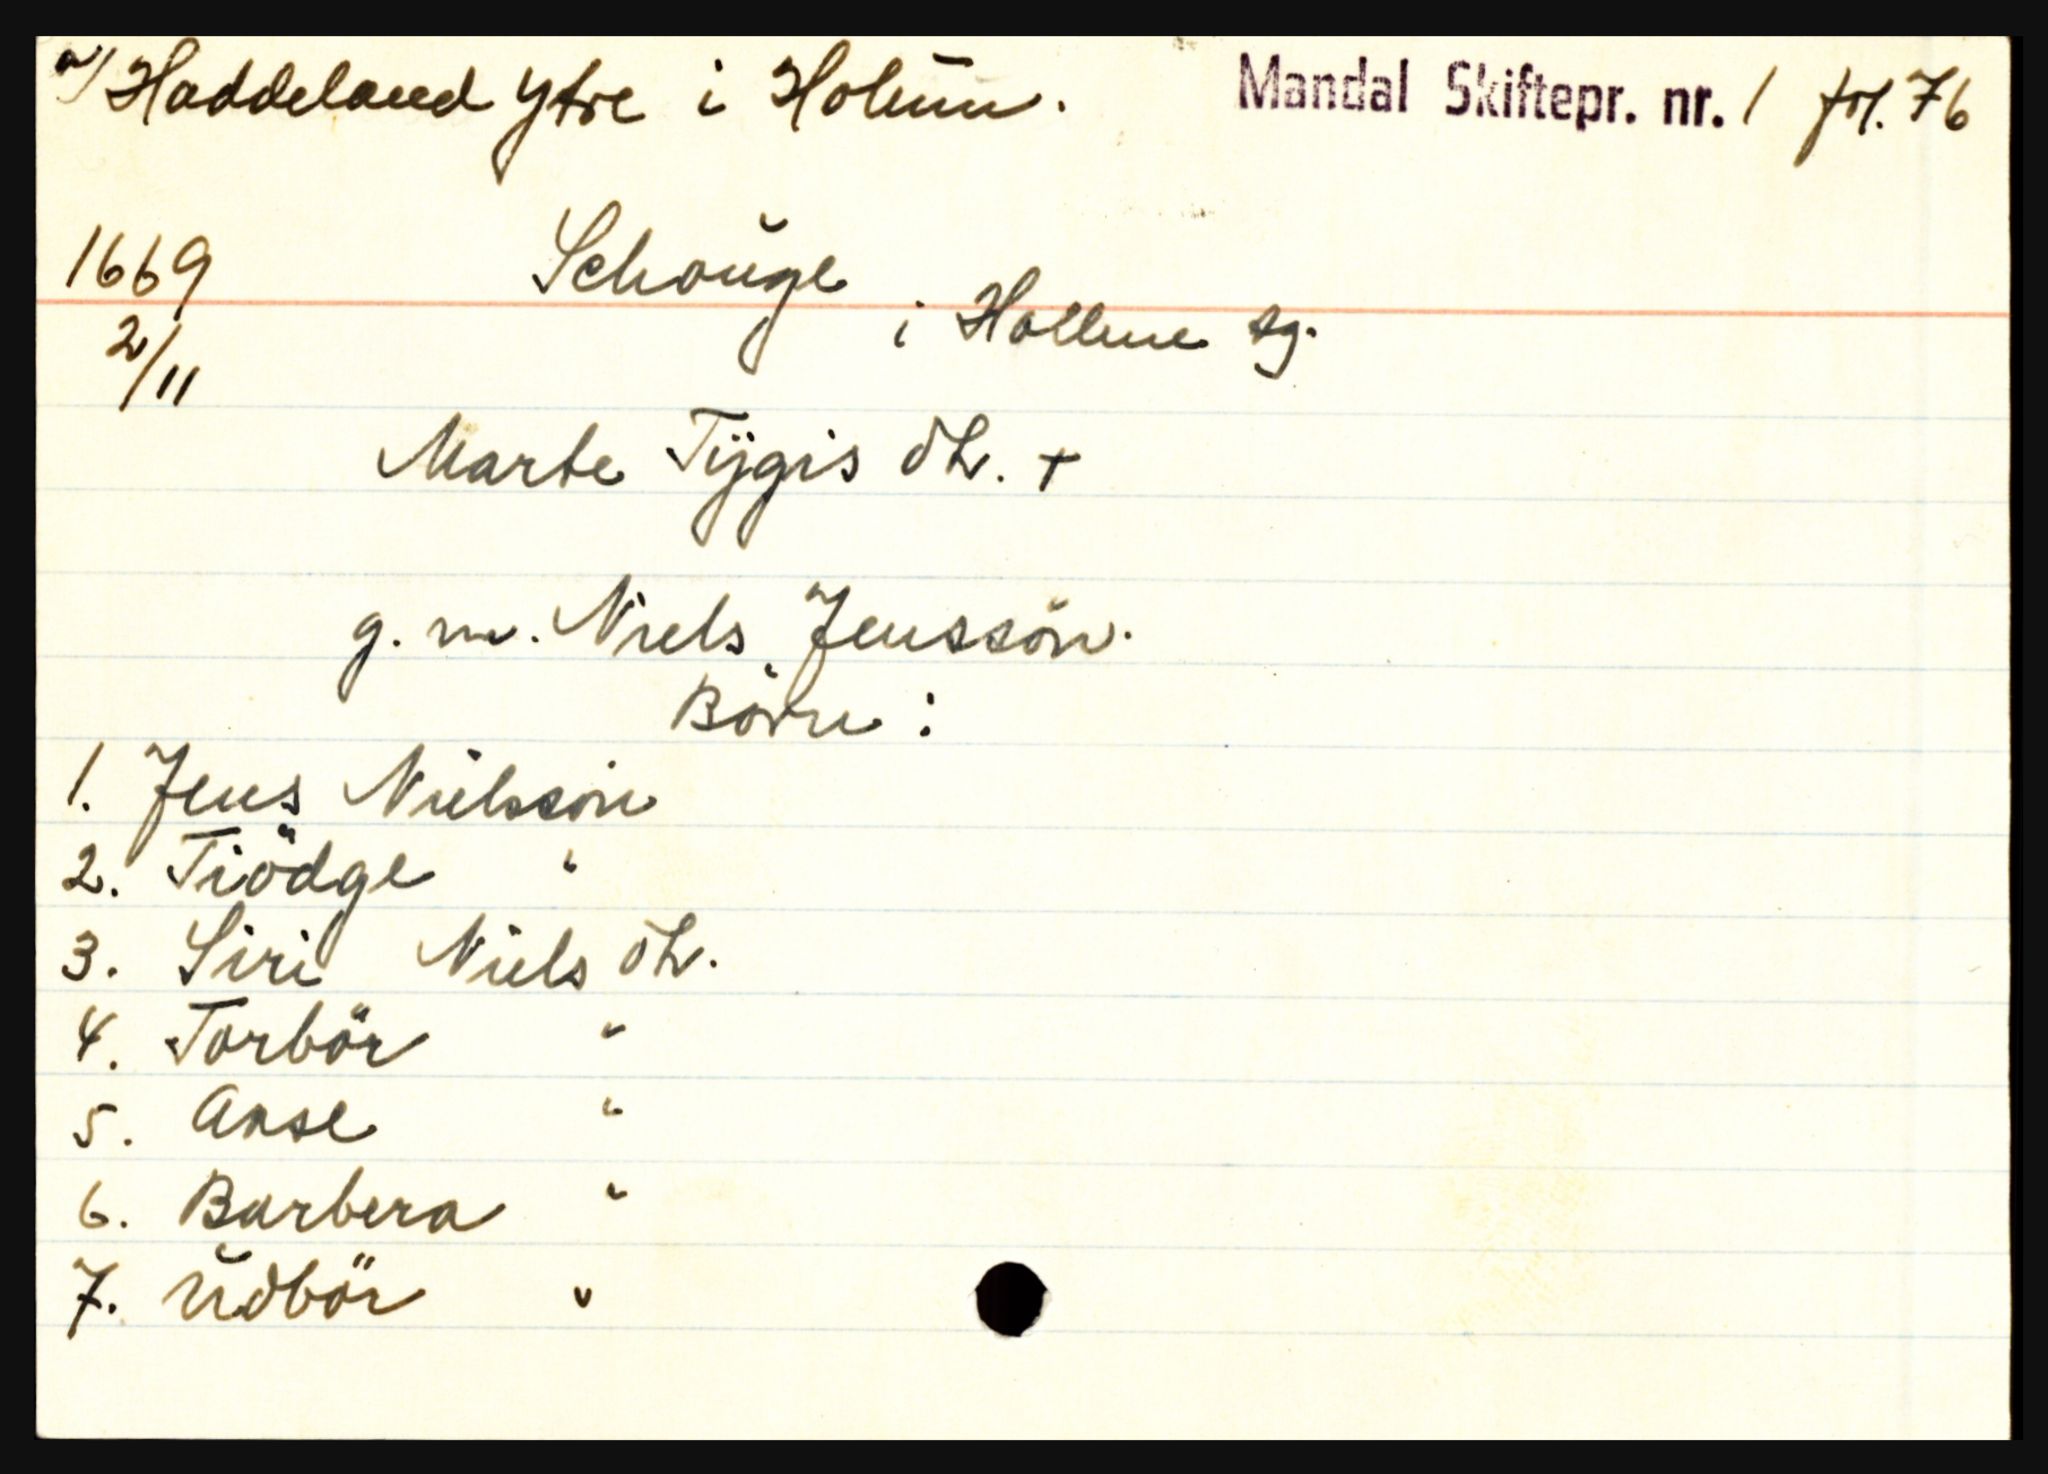 a/ Haddeland Ytre i Holum. Mandal Skiftepr. nr. 1 fol. 76
1669 Schouge
2/11 i Hollme sg.
Marte Tÿgis dtr. +
g. m. Niels Jenssön.
Börn :
1. Jens Nielssön
2. Tiödge "
3. Siri Niels dtr.
4. Torbör "
5. Anse "
6. Barbera "
7. Udbör "